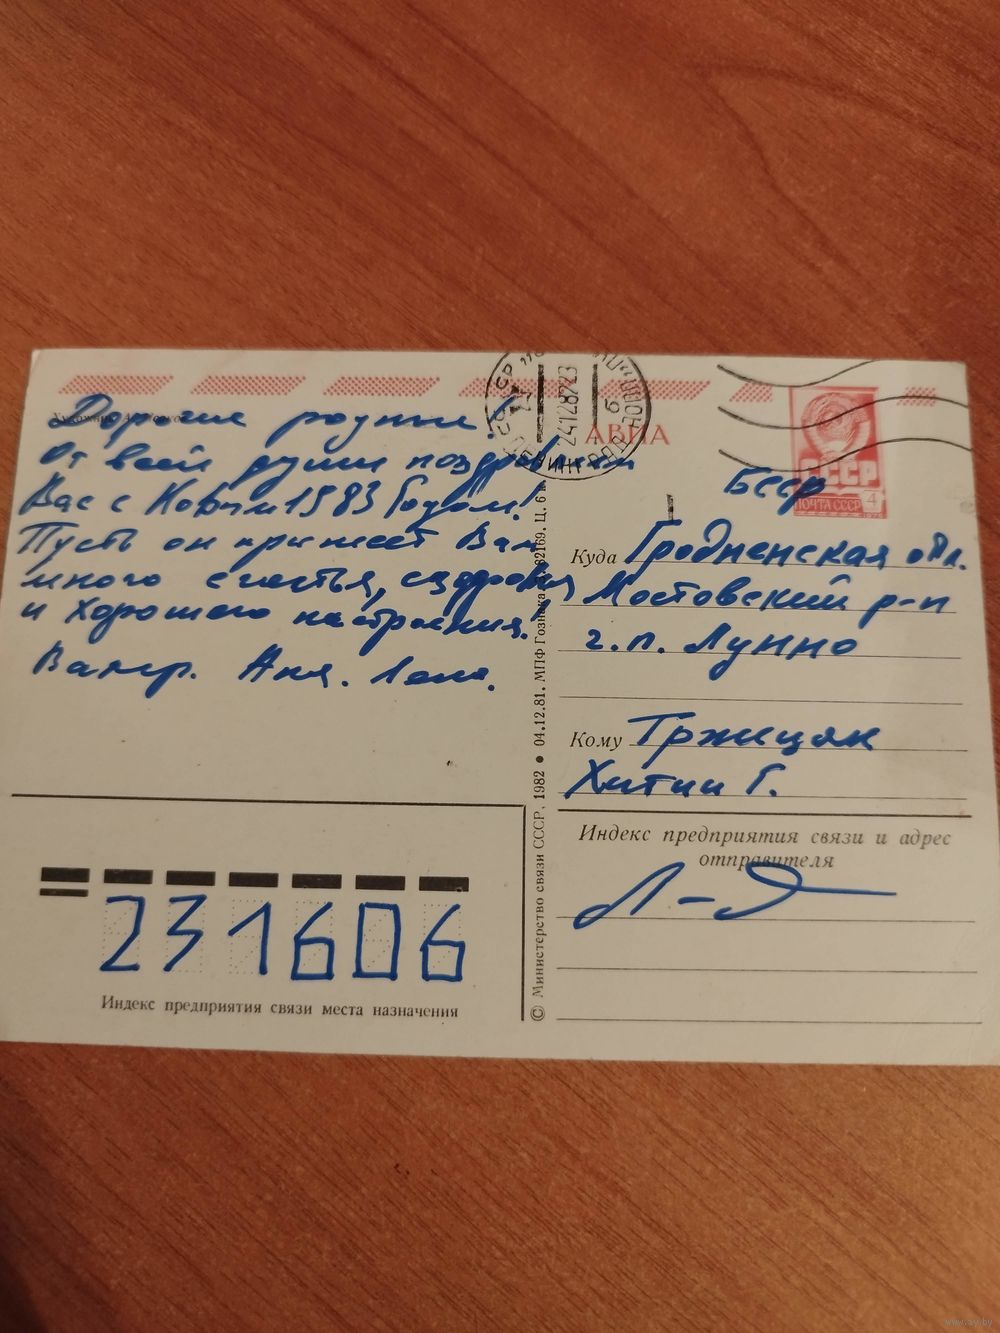 Художник
Дорогие родные!
От всей души поздравляем
Вас с Новым 1983 Годом!
Пусть он принесет Вам
много счастья, здоровья
и хорошего настроения!
Аня. Лена.
АВИА
ЛЕНИНГРАД
241282 23
СССР
ПОЧТА СССР
4
БССР
Куда Гродненская обл.
Мостовский р-н
г.п. Лунно
Кому Тржецяк
Г.
Индекс предприятия связи и адрес
отправителя
Л-д
231606
Индекс предприятия связи места назначения
© Министерство связи СССР, 1982 • 04.12.81. МПФ Гознака. 162169. Ц. 6 к.
www.ay.by